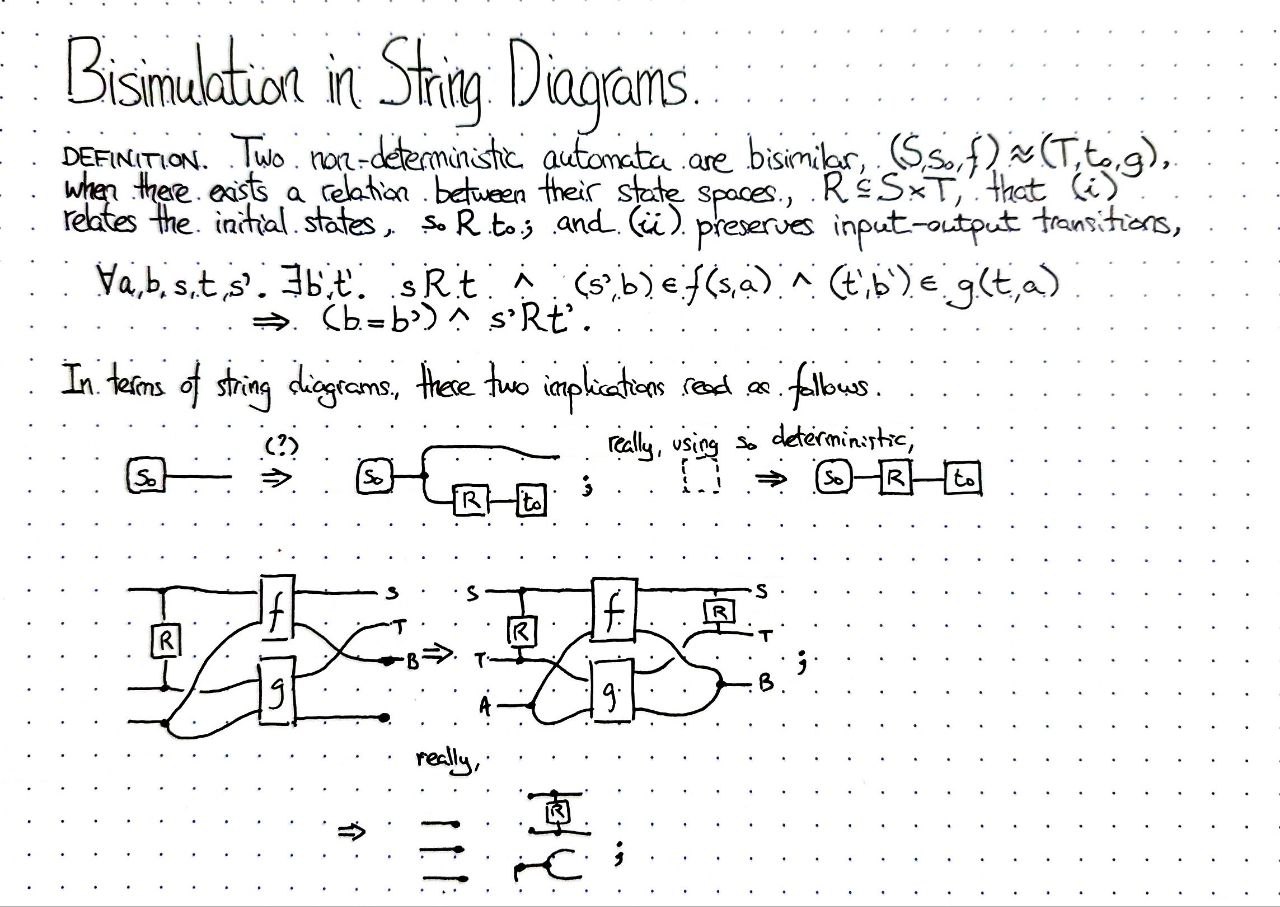 Bisimulation in String Diagrams.
DEFINITION. Two non-deterministic automata are bisimilar, (S,s₀,f) ≈ (T,t₀,g),
when there exists a relation between their state spaces, R ⊆ S×T, that (i)
relates the initial states, s₀ R t₀; and (ii) preserves input-output transitions,
∀a,b,s,t,s'. ∃b',t'. s R t ∧ (s',b) ∈ f(s,a) ∧ (t',b') ∈ g(t,a)
⇒ (b=b') ∧ s'Rt'.
In terms of string diagrams, these two implications read as follows.
(?) really, using s₀ deterministic,
s₀ ⇒ s₀ R t₀ ; ⇒ s₀ R t₀
f S S f S
R T R R T
B ⇒ T ; 
g A g B
really,
⇒ R ;